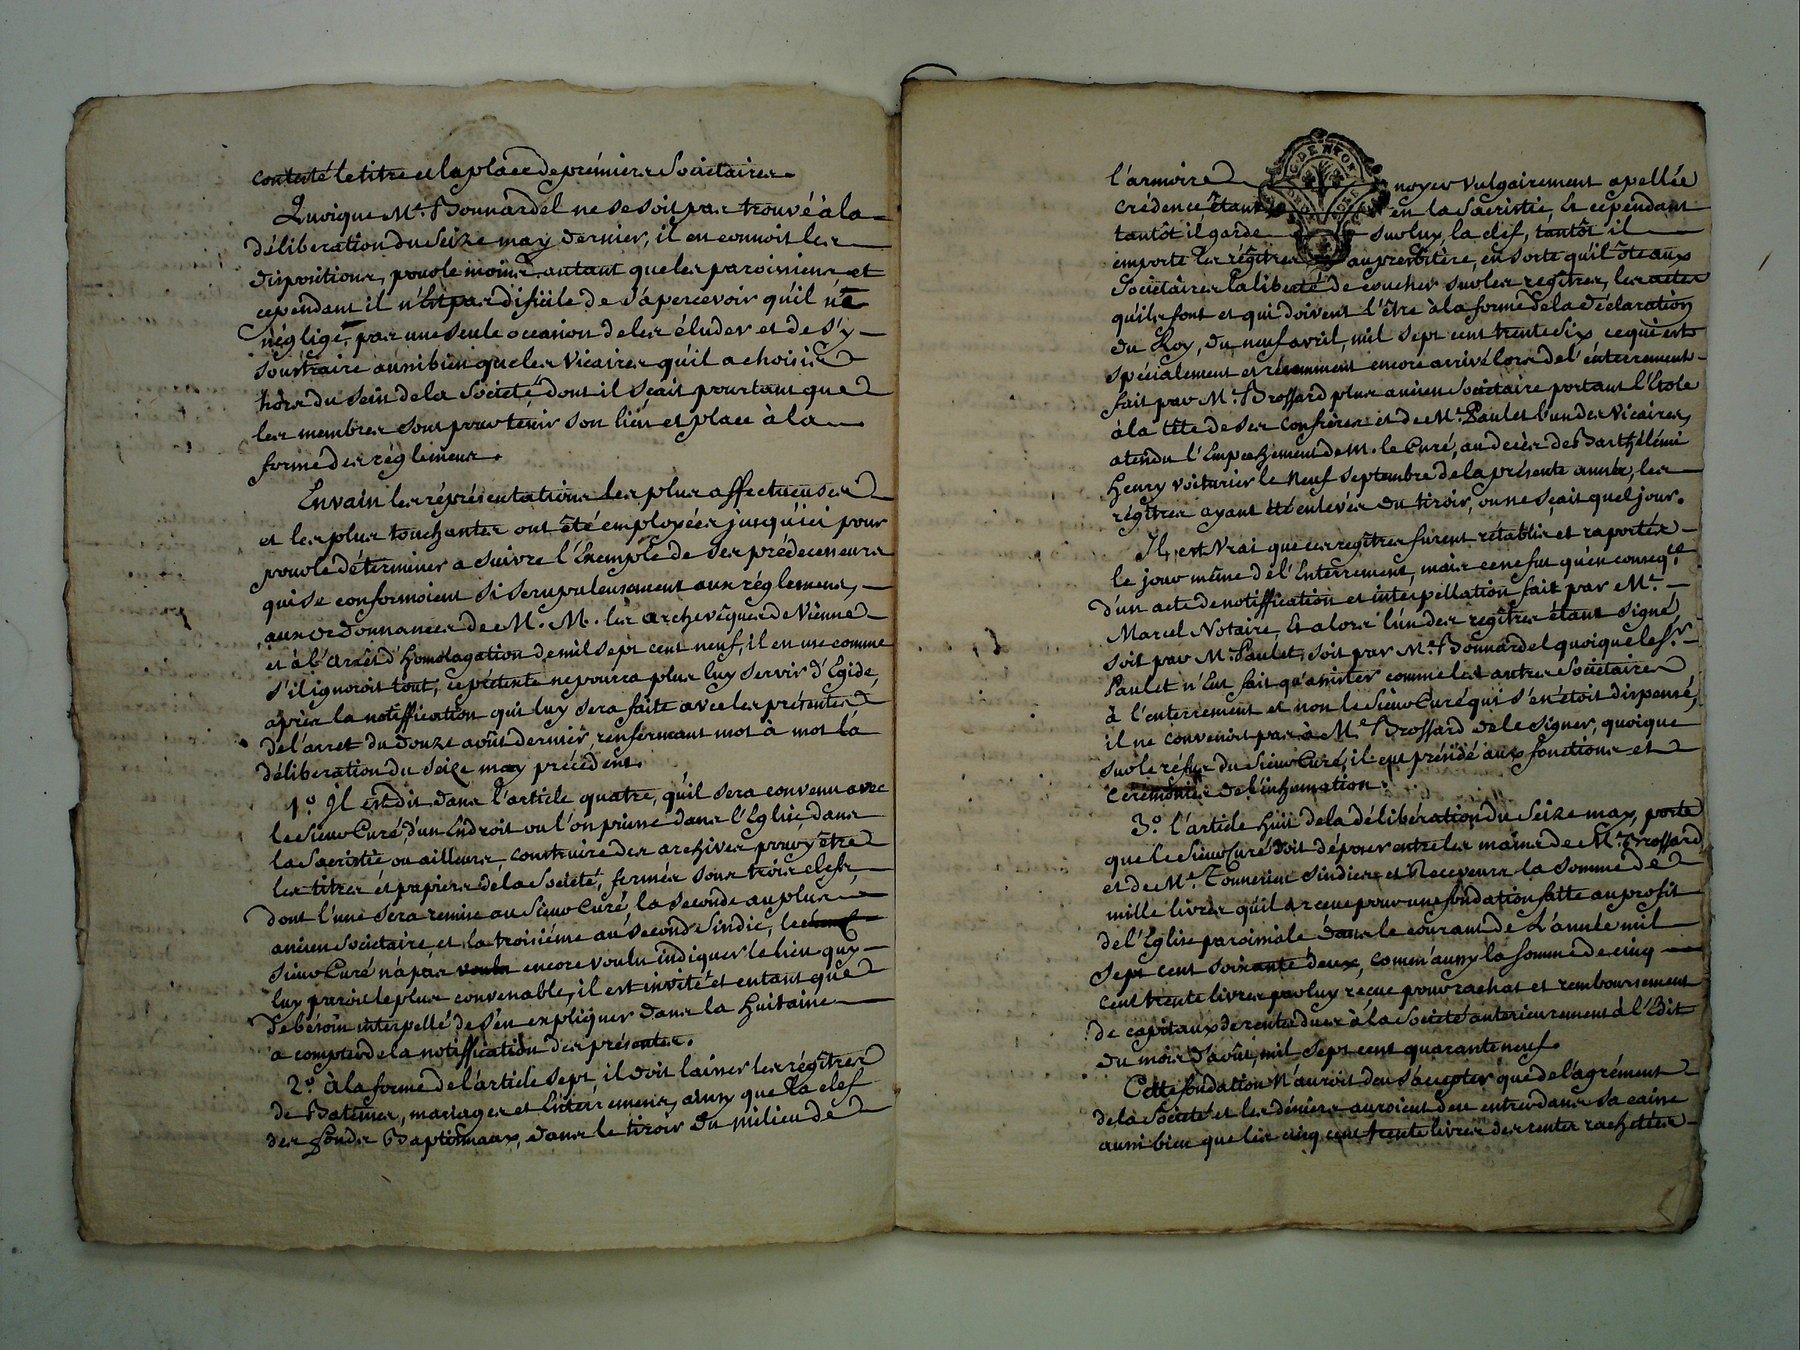 contesté le titre et la place de premier Societaire.
Quoique Mr. Bonnardel ne se soit pas trouvé à la
déliberation du Seize may dernier, il en connoit les
dispositions, pour le moins autant que les paroissiens et
cependant il n'est pas dificile de s'apercevoir qu'il n'a
négligé, par une seule occasion de les éluder et de s'y
soustraire aussi bien que les Vicaires qu'il a choisis
hors du sein de la Societé dont il sçait pourtant que
les membres sont pour tenir son lieu et place à la
forme des réglemens.
Envain les réprésentations les plus affectueuses
et les plus touchantes ont été employées jusqu'ici pour
pour le déterminer a suivre l'Exemple de ses prédecesseurs
qui se conformoient si scrupuleusement aux réglemens,
aux ordonnances de M. M. les archevêques de Vienne
et à l'arrêt d'homologation de mil sept cent neuf, il en use comme
s'il ignoroit tout, ce prétexte ne pourra plus luy servir d'Egide,
après la notiffication qui luy sera faite avec les présentes
de l'arret du douze août dernier, renfermant mot à mot la
déliberation du seize may précédent.
1.° Il est dit dans l'article quatre, qu'il sera convenu avec
le Sieur Curé, d'un Endroit ou l'on puisse dans l'Eglise, dans
la Sacristie ou ailleurs construire des archives pour y être
les titres et papiers de la Societé, fermés sous trois clefs,
dont l'une sera remise au Sieur Curé, la seconde au plus
ancien Societaire et la troisiéme au Second Sindic, le
Sieur Curé n'a pas voulu encore voulu indiquer le lieu qui
luy paroit le plus convenable, il est invité et entant que
de bésoin interpellé de s'en expliquer dans la huitaine
a compter de la notiffication des présentes.
2.° à la forme de l'article sept, il doit laisser les régîtres
de Batêmes, mariages et Enterremens, ainsy que la clef
des fonds Baptismaux, dans le tiroir du milieu de
l'armoire noyer vulgairement apellée
crédence étant en la Sacristie, Et cependant
tantôt il garde sur luy la clef, tantôt il
emporte les régîtres au presbitère, en sorte qu'il ôte aux
Societaires la liberté de coucher sur les regîtres, les actes
qu'ils font et qui doivent l'être à la forme de la déclaration
du Roy, du neuf avril, mil sept cent trente six ce qui est
spécialement et récemment encore arrivé lors de l'enterrement
fait par Mr. Brossard plus ancien Societaire portant l'Etole
à la tête de ses confrères et de Mr. Paulet l'un des Vicaires,
atendu l'Empechement de M. le Curé, au decès de Barthélémi
Henry voiturier le Neuf Septembre de la présente année, les
régîtres ayant été enlevés du tiroir, on ne sçait quel jour.
Il est vrai que ces regîtres furent rétablis et raportés
le jour même de l'Enterrement, mais ce ne fut qu'en conseq.ce
d'un acte de notiffication et interpellation fait par Mr.
Marcel Notaire, Et alors l'un des regîtres étant signé
soit par Mr. Paulet, soit par Mr. Bonnardel quoique le Sr.
Paulet n'Eut fait qu'assister comme les autres Societaires
à l'enterrement et non le Sieur Curé qui s'en étoit dispensé,
il ne convenoit pas à Mr. Brossard de le signer, quoique
sur le réfus du Sieur Curé, il eut présidé aux fonctions et
Cérémonies de l'inhumation.
3.° l'article huit de la déliberation du Seize may, porte
que le Sieur Curé doit déposer entre les mains de Mr. Brossard
et de Mr. Tonnerieu Sindics et Receveurs la somme de
mille livres qu'il a recue pour une fondation faitte au profit
de l'Eglise paroissiale dans le courant de L'année mil
sept cent soixante deux, comm'aussy la somme de cinq
cent trente livres par luy reçue pour rachat et remboursement
de capitaux de rentes dues à la Societé anterieurement à l'Edit
du mois d'août, mil sept cent quarante neuf.
Cette fondation N'auroit deu s'accepter que de l'agrément
de la Societé et les déniers auroient deu entrer dans sa caisse
aussi bien que les cinq cent trente livres des rentes rachettées